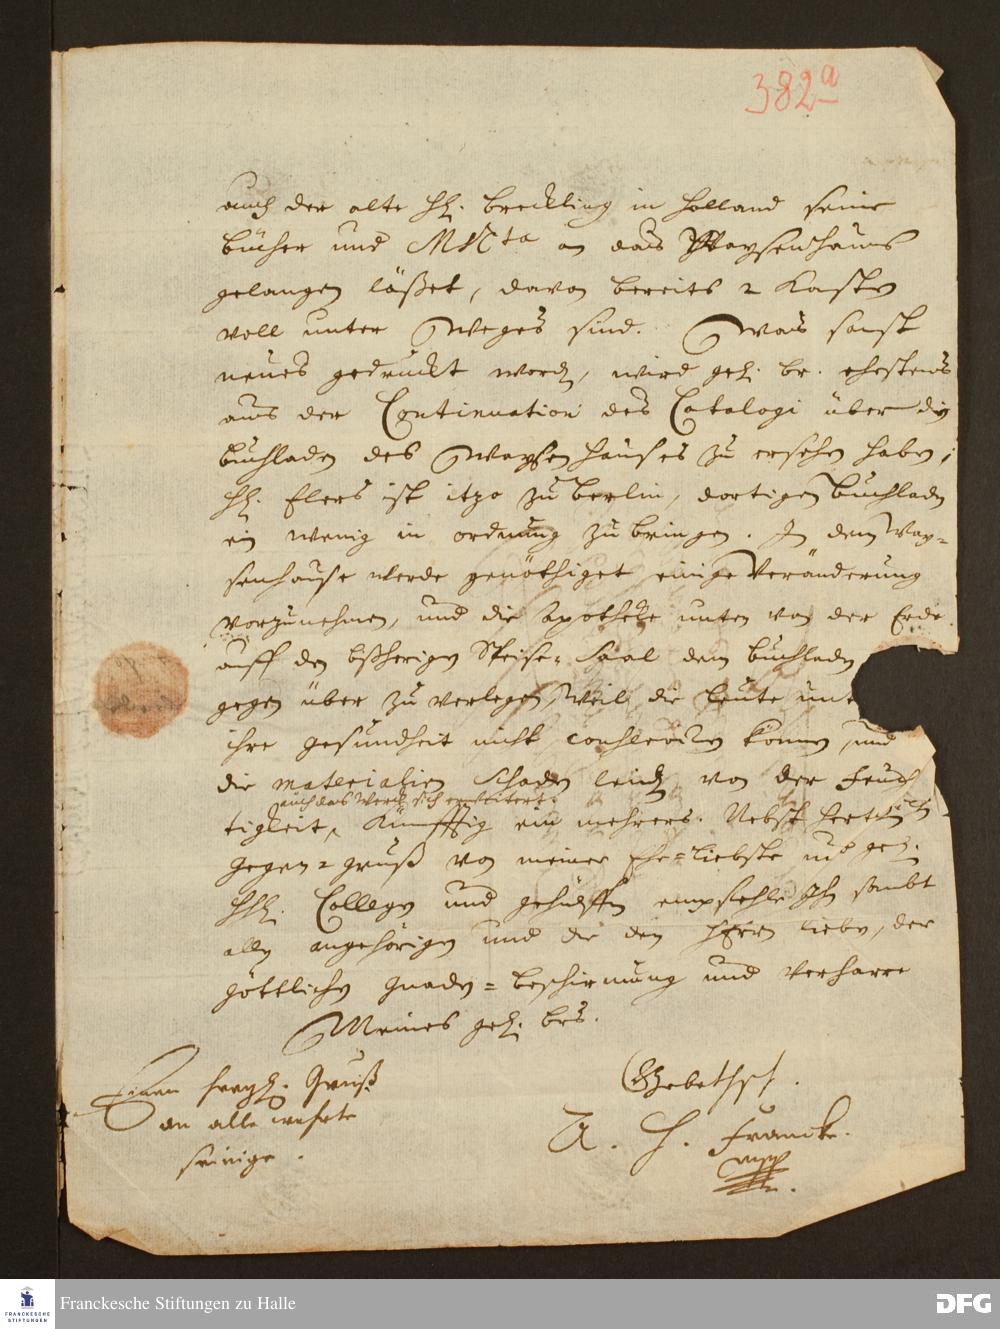 382a
auch der alte Hl. Breckling in Holland seine
bücher und MSCta an das Waysenhaus
gelangen läßet, davon bereits 2 Kasten
voll unter Weges sind. Was sonst
neues gedruckt word, wird gel. br. ehestens
aus der Continuation des Catalogi über den
buchladen des Waysenhauses zu ersehen haben;
Hl. Elers ist itzo zu berlin, dortigen buchladen
ein wenig in ordnung zu bringen. In dem Way-
senhause werde genöthiget einige Veränderung
vorzunehmen, und die Apotheke unten von der Erde
auff den bißherigen Speise-Saal dem buchladen
gegen über zu verlegen, weil die leute unt
ihre gesundheit nicht conserviren können, und
die materialien schaden leiden von der Feuch
auch das Werck sich erweitert.
tigkeit, Künfftig ein mehrers. Nebst hertzlich
gegen-gruß von meiner Ehe-liebste und gel.
HH. Collegen und gehülffen empfehle Ihn sambt
allen angehörigen und die den HErrn lieben, der
göttlichen Gnaden-beschirmung und Verharre
Meines gel. brs.
Einen hertzl. Gruß
an alle werthe
seinige.
Gebethsf.
A. H. Francke.
mpp
Franckesche Stiftungen zu Halle
FRANCKESCHE
STIFTUNGEN
DFG